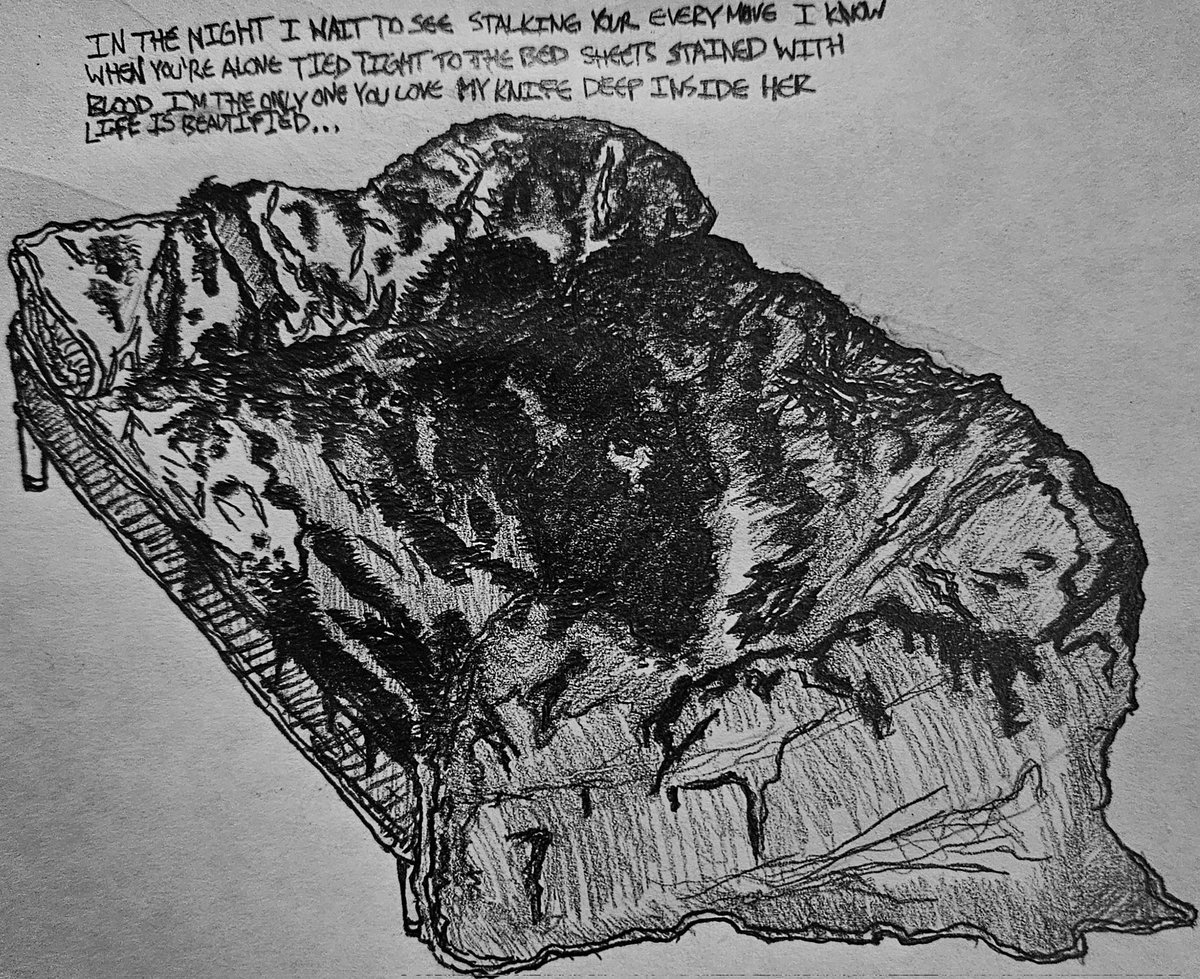 IN THE NIGHT I WAIT TO SEE STALKING YOUR EVERY MOVE I KNOW
WHEN YOU'RE ALONE TIED TIGHT TO THE BED SHEETS STAINED WITH
BLOOD I'M THE ONLY ONE YOU LOVE MY KNIFE DEEP INSIDE HER
LIFE IS BEAUTIFIED...